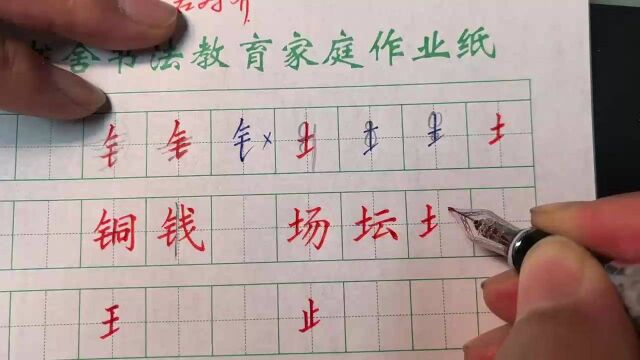 舍书法教育家庭作业纸
钅 钅 钅 × 土 土 土 土
铜 钱 场 坛 土
王 止